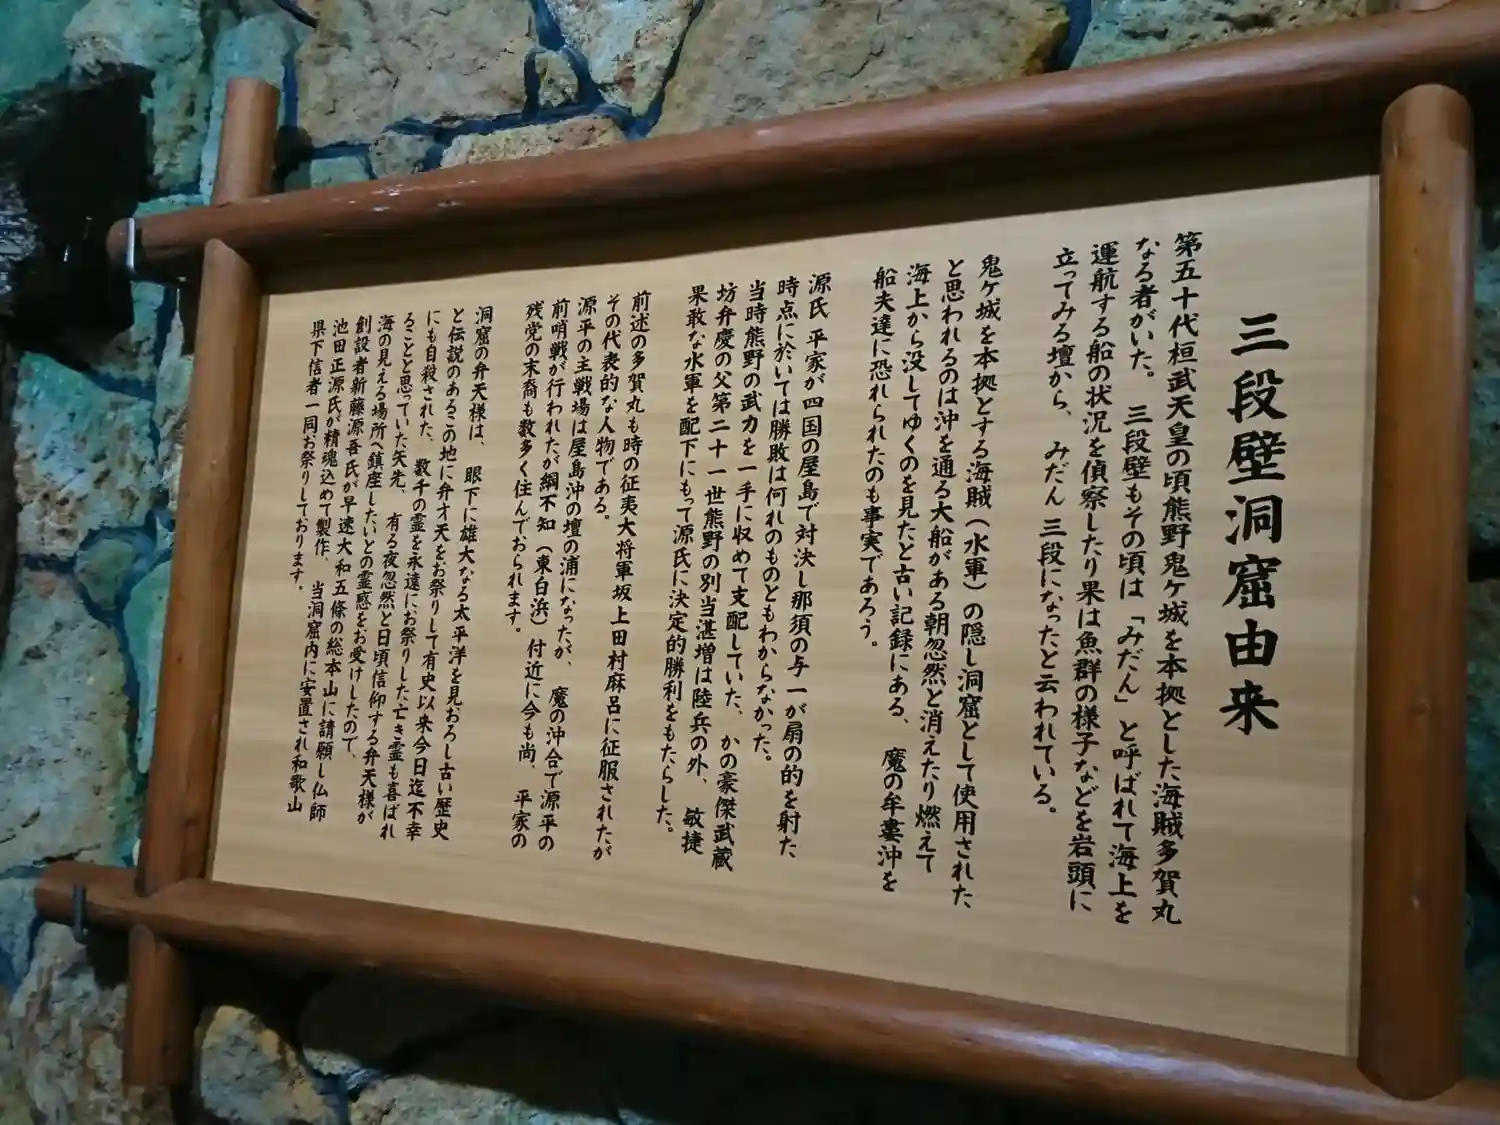 三段壁洞窟由来
第五十代桓武天皇の頃熊野鬼ケ城を本拠とした海賊多賀丸
なる者がいた。三段壁もその頃は「みだん」と呼ばれて海上を
運航する船の状況を偵察したり果は魚群の様子などを岩頭に
立ってみる壇から、みだん三段になったと云われている。
鬼ケ城を本拠とする海賊（水軍）の隠し洞窟として使用された
と思われるのは沖を通る大船がある朝忽然と消えたり燃えて
海上から没してゆくのを見たと古い記録にある、魔の牟婁沖を
船夫達に恐れられたのも事実であろう。
源氏平家が四国の屋島で対決し那須の与一が扇の的を射た
時点に於いては勝敗は何れのものともわからなかった。
当時熊野の武力を一手に収めて支配していた、かの豪傑武蔵
坊弁慶の父第二十一世熊野の別当湛増は陸兵の外、敏捷
果敢な水軍を配下にもって源氏に決定的勝利をもたらした。
前述の多賀丸も時の征夷大将軍坂上田村麻呂に征服されたが
その代表的な人物である。
源平の主戦場は屋島沖の壇の浦になったが、魔の沖合で源平の
前哨戦が行われたが綱不知（東白浜）付近に今も尚、平家の
残党の末裔も数多く住んでおられます。
洞窟の弁天様は、眼下に雄大なる太平洋を見おろし古い歴史
と伝説のあるこの地に弁才天をお祭りして有史以来今日迄不幸
にも自殺された、数千の霊を永遠にお祭りした亡き霊も喜ばれ
ることと思っていた矢先、有る夜忽然と日頃信仰する弁天様が
海の見える場所へ鎮座したいとの霊感をお受けしたので、
創設者新藤源吾氏が早速大和五條の総本山に請願し仏師
池田正源氏が精魂込めて製作、当洞窟内に安置され和歌山
県下信者一同お祭りしております。